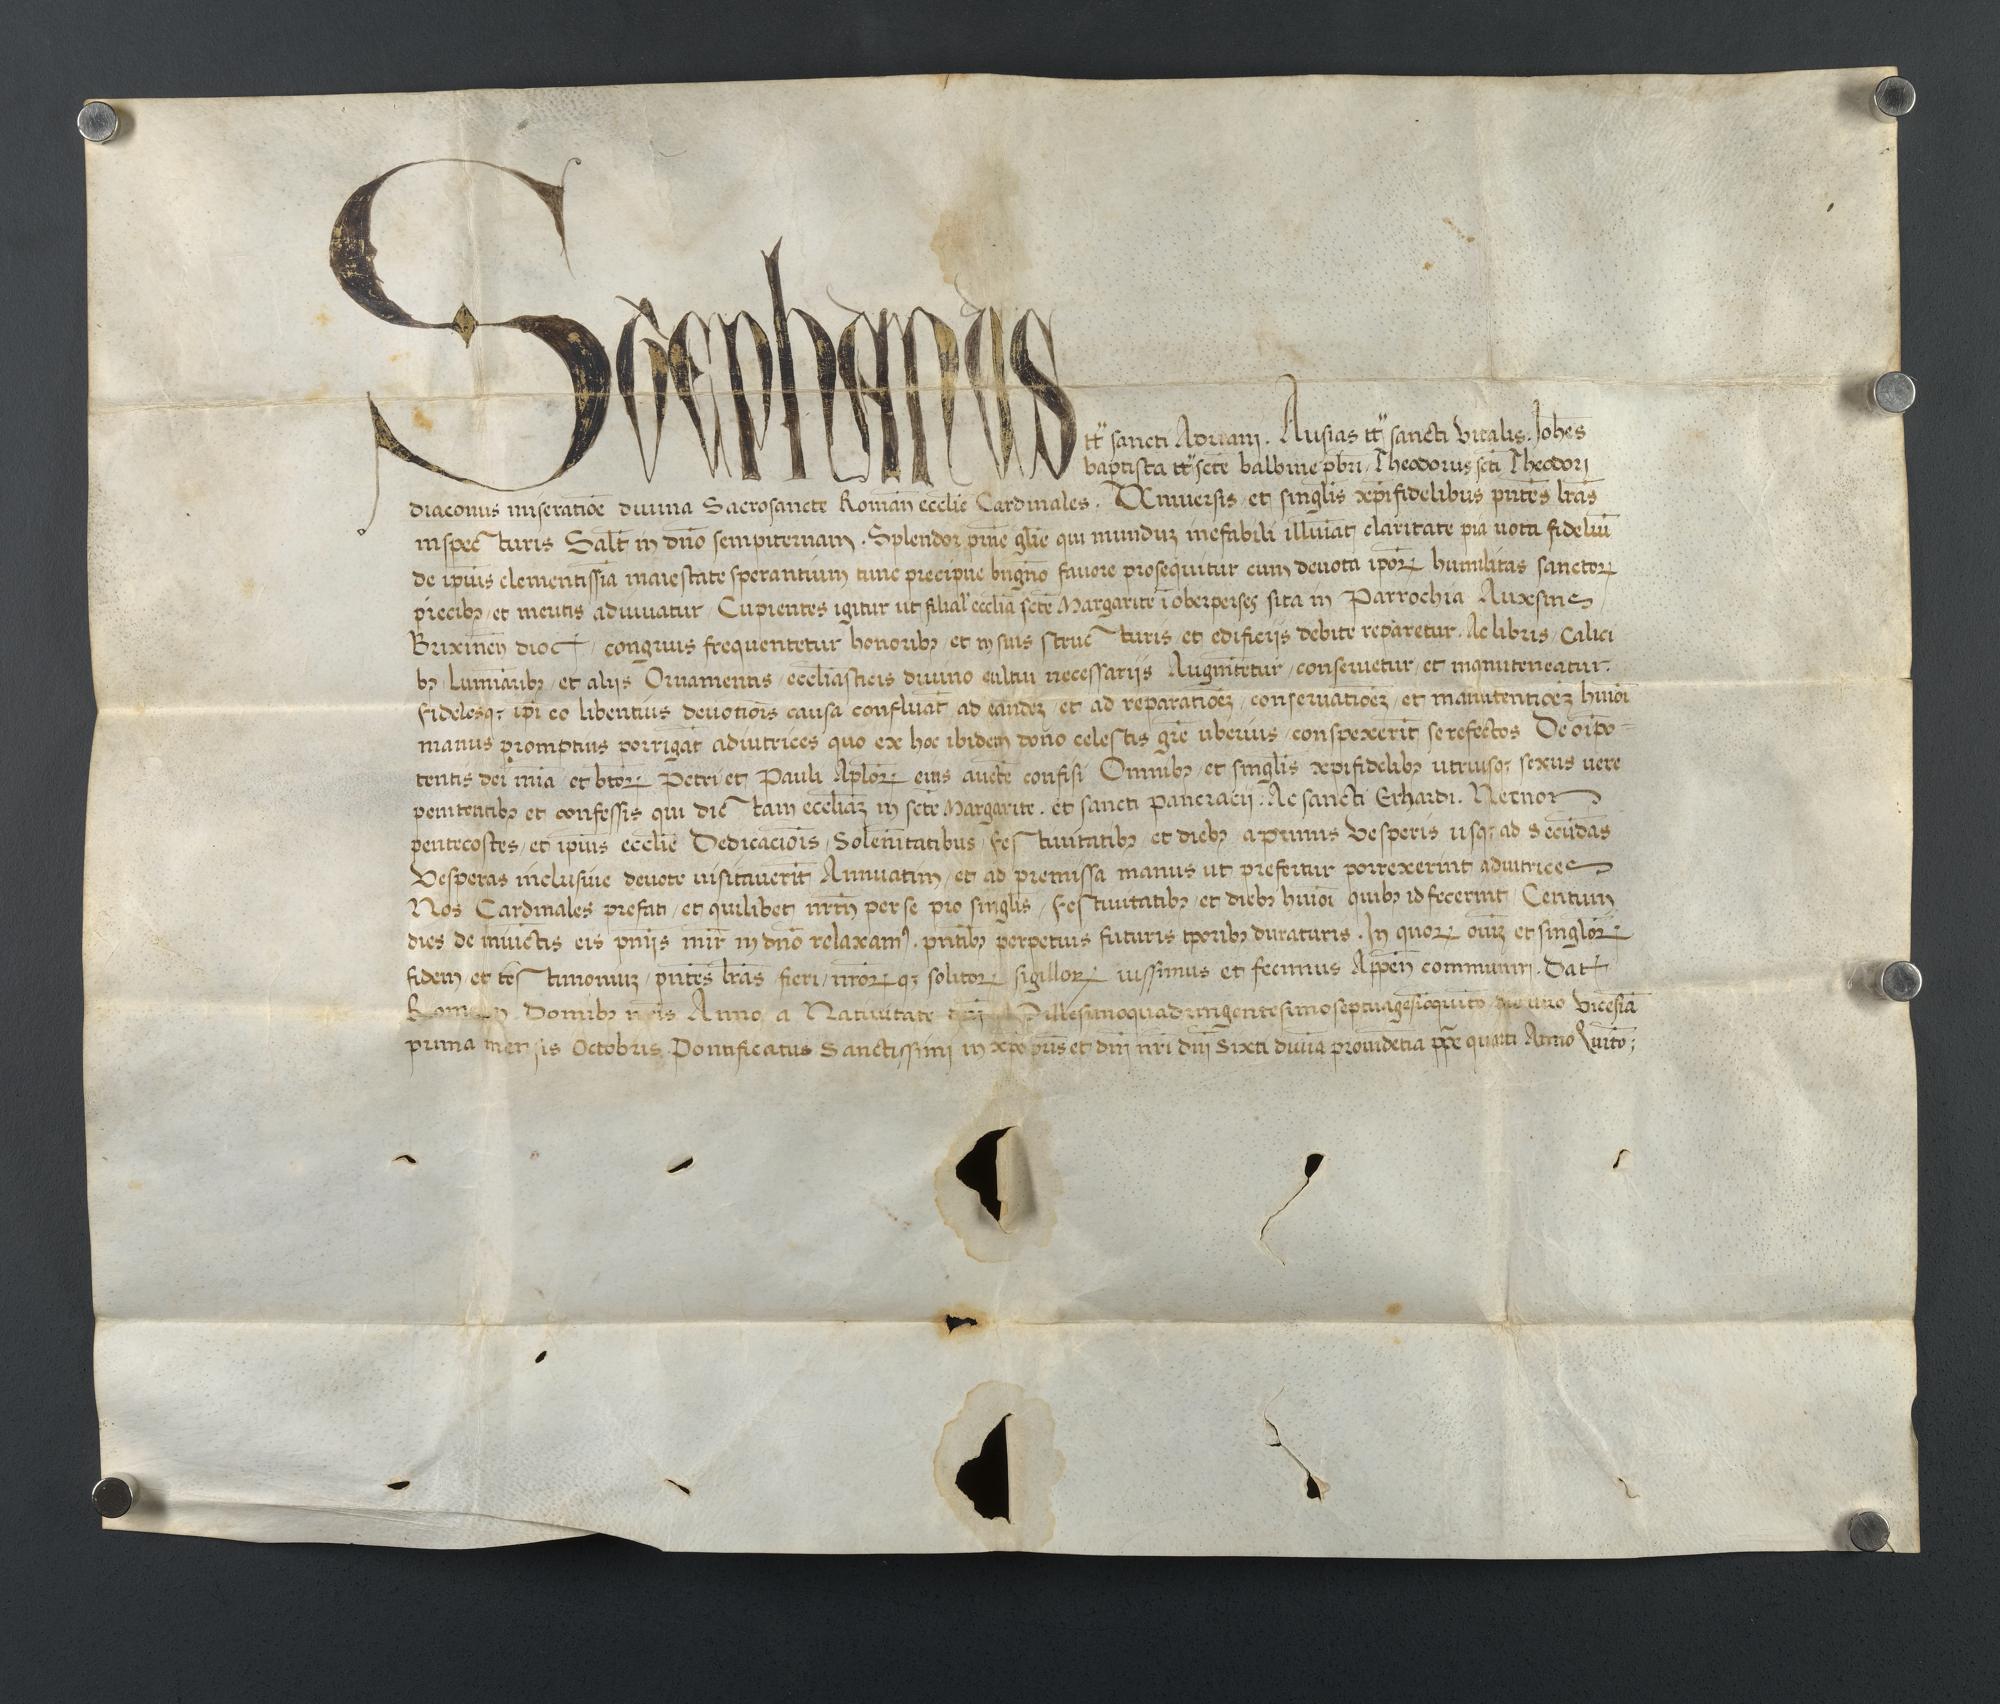 Stephanus
tt sancti Adriani. Ausias tt sancti Vitalis. Johes
baptista tt scte balbine pbri, Theodorus scti Theodori
diaconus miseratioe diuina Sacrosancte Roman ecclie Cardinales. Vniuersis et singlis xpifidelibus pntes lras
inspecturis Salt in dno sempiternam. Splendor pme glie qui munduz inefabili illuiat claritate pia uota fideliu
de ipius clementissia maiestate sperantium tunc precipue bngno fauore prosequitur cum deuota ipor humilitas sanctor
precibz et meritis adiuuatur, Cupientes igitur ut filial ecclia scte Margarite i oberperses sita in Parrochia Auxsines
Brixinen dioc, congruis frequentetur honoribz, et in suis structuris et edificijs debite reparetur. Ac libris, Calici
bz, Luminaribz, et alijs Ornamentis, eccliasticis diuino cultui necessarijs Augmtetur, conseruetur, et manuteneatur.
fidelesqz ipi eo libentius deuotiois causa confluat ad eandez, et ad reparatioez, conseruatioez, et manutentioez huioi
manus promptius porrigat adiutrices quo ex hoc ibidem dono celestis gre uberius, conspexerit se refectos De oipo-
tentis dei mia et btor Petri et Pauli Aplor eius aucte confisi Omnibz et singlis xpifidelibz utriusqz sexus uere
penitentibz et confessis qui dictam eccliaz in scte Margarite. et sancti pancracij. Ac sancti Erhardi. Necnon
pentecostes, et ipius ecclie Dedicaciois, Solenitatibus, festiuitatibz et diebz a primis Vesperis usqz ad Secudas
Vesperas inclusiue deuote uisitauerit Annuatim, et ad premissa manus ut prefertur porrexerint adiutrices
Nos Cardinales prefati, et quilibet nrm per se pro singlis, festiuitatibz et diebz huioi quibz id fecerint, Centum
dies de iniuctis eis pnijs mir in dno relaxam9. pntibz perpetuis futuris tporibz duraturis. In quor oiuz et singlor
fidem et testimoniuz, pntes lras fieri, nrorqz solitor sigillor iussimus et fecimus Appen communiri. Dat
Rome in Domibz nris Anno a Natiuitate dni Millesimoquadringentesimoseptuagesioquito die uero Vicesia
prima mensis Octobris. Pontificatus Sanctissimi in xpo pris et dni nri dni Sixti diuia prouidetia ppe quarti Anno Quito;